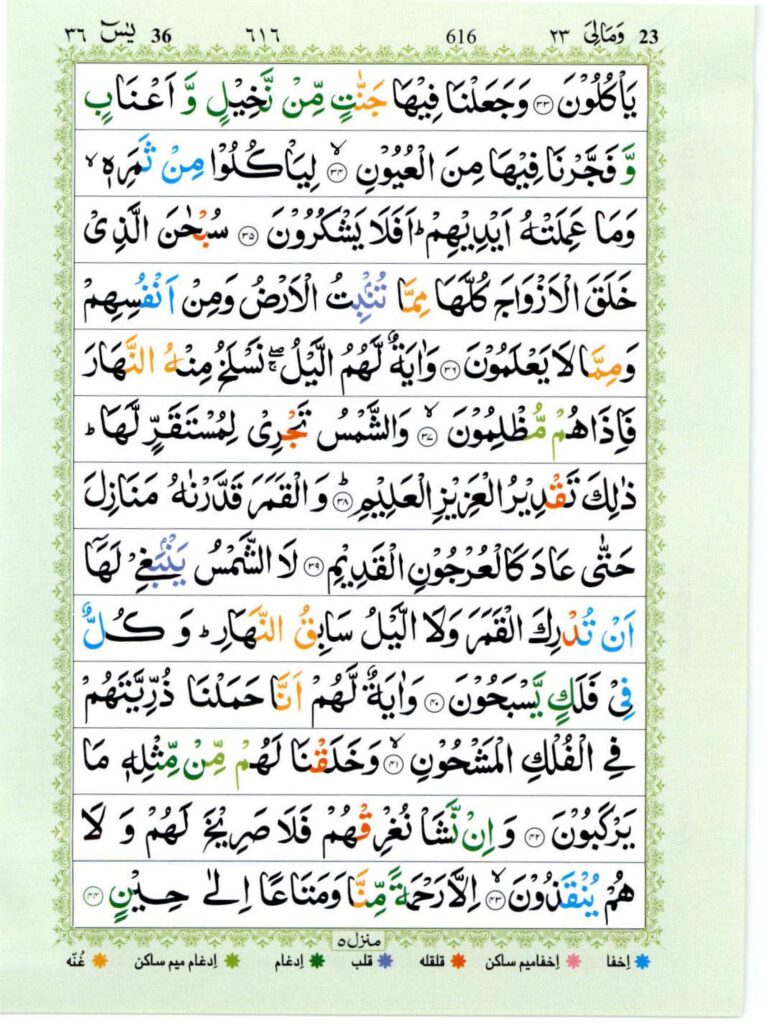 23 وَمَالِیَ ٢٣ 616 ٦١٦ 36 یٰسٓ ٣٦
یَاْكُلُوْنَ ﴿۳۳﴾ وَجَعَلْنَا فِیْهَا جَنّٰتٍ مِّنْ نَّخِیْلٍ وَّ اَعْنَابٍ
وَّ فَجَّرْنَا فِیْهَا مِنَ الْعُیُوْنِ ۙ﴿۳۴﴾ لِیَاْكُلُوْا مِنْ ثَمَرِهٖ ۙ
وَمَا عَمِلَتْهُ اَیْدِیْهِمْ ؕ اَفَلَا یَشْكُرُوْنَ ﴿۳۵﴾ سُبْحٰنَ الَّذِیْ
خَلَقَ الْاَزْوَاجَ كُلَّهَا مِمَّا تُنْۢبِتُ الْاَرْضُ وَمِنْ اَنْفُسِهِمْ
وَمِمَّا لَا یَعْلَمُوْنَ ﴿۳۶﴾ وَاٰیَةٌ لَّهُمُ الَّیْلُ ۖۚ نَسْلَخُ مِنْهُ النَّهَارَ
فَاِذَا هُمْ مُّظْلِمُوْنَ ۙ﴿۳۷﴾ وَالشَّمْسُ تَجْرِیْ لِمُسْتَقَرٍّ لَّهَا ؕ
ذٰلِكَ تَقْدِیْرُ الْعَزِیْزِ الْعَلِیْمِ ؕ﴿۳۸﴾ وَ الْقَمَرَ قَدَّرْنٰهُ مَنَازِلَ
حَتّٰی عَادَ كَالْعُرْجُوْنِ الْقَدِیْمِ ﴿۳۹﴾ لَا الشَّمْسُ یَنْۢبَغِیْ لَهَاۤ
اَنْ تُدْرِكَ الْقَمَرَ وَلَا الَّیْلُ سَابِقُ النَّهَارِ ؕ وَ كُلٌّ
فِیْ فَلَكٍ یَّسْبَحُوْنَ ﴿۴۰﴾ وَاٰیَةٌ لَّهُمْ اَنَّا حَمَلْنَا ذُرِّیَّتَهُمْ
فِی الْفُلْكِ الْمَشْحُوْنِ ۙ﴿۴۱﴾ وَخَلَقْنَا لَهُمْ مِّنْ مِّثْلِهٖ مَا
یَرْكَبُوْنَ ﴿۴۲﴾ وَاِنْ نَّشَاْ نُغْرِقْهُمْ فَلَا صَرِیْخَ لَهُمْ وَ لَا
هُمْ یُنْقَذُوْنَ ۙ﴿۴۳﴾ اِلَّا رَحْمَةً مِّنَّا وَمَتَاعًا اِلٰی حِیْنٍ ﴿۴۴﴾
منزل ٥
اِخفا اِخفامیم ساکن قلقله قلب اِدغام اِدغام میم ساکن غُنّه